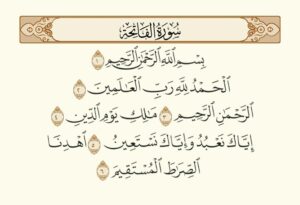 سُورَةُ الفَاتِحَةِ
بِسْمِ اللَّهِ الرَّحْمَٰنِ الرَّحِيمِ ١
الْحَمْدُ لِلَّهِ رَبِّ الْعَالَمِينَ ٢
الرَّحْمَٰنِ الرَّحِيمِ ٣ مَالِكِ يَوْمِ الدِّينِ ٤
إِيَّاكَ نَعْبُدُ وَإِيَّاكَ نَسْتَعِينُ ٥ اهْدِنَا
الصِّرَاطَ الْمُسْتَقِيمَ ٦